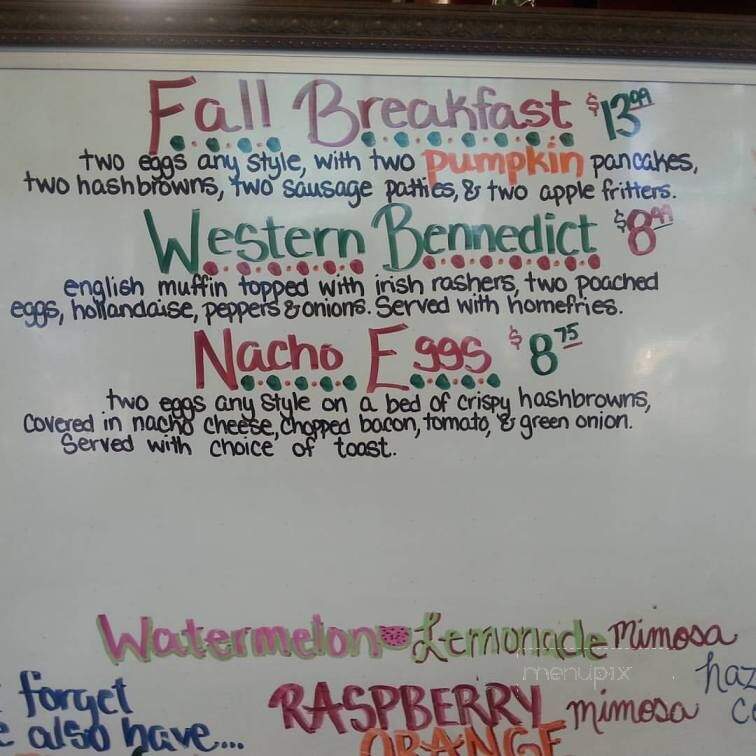 Fall Breakfast $13.99
two eggs any style, with two pumpkin pancakes,
two hashbrowns, two sausage patties, & two apple fritters.
Western Bennedict $8.99
english muffin topped with irish rashers, two poached
eggs, hollandaise, peppers & onions. Served with homefries.
Nacho Eggs $8.75
two eggs any style on a bed of crispy hashbrowns,
covered in nacho cheese, chopped bacon, tomato, & green onion.
Served with choice of toast.
Watermelon Lemonade mimosa
menupix
forget
also have...
RASPBERRY mimosa
ORANGE